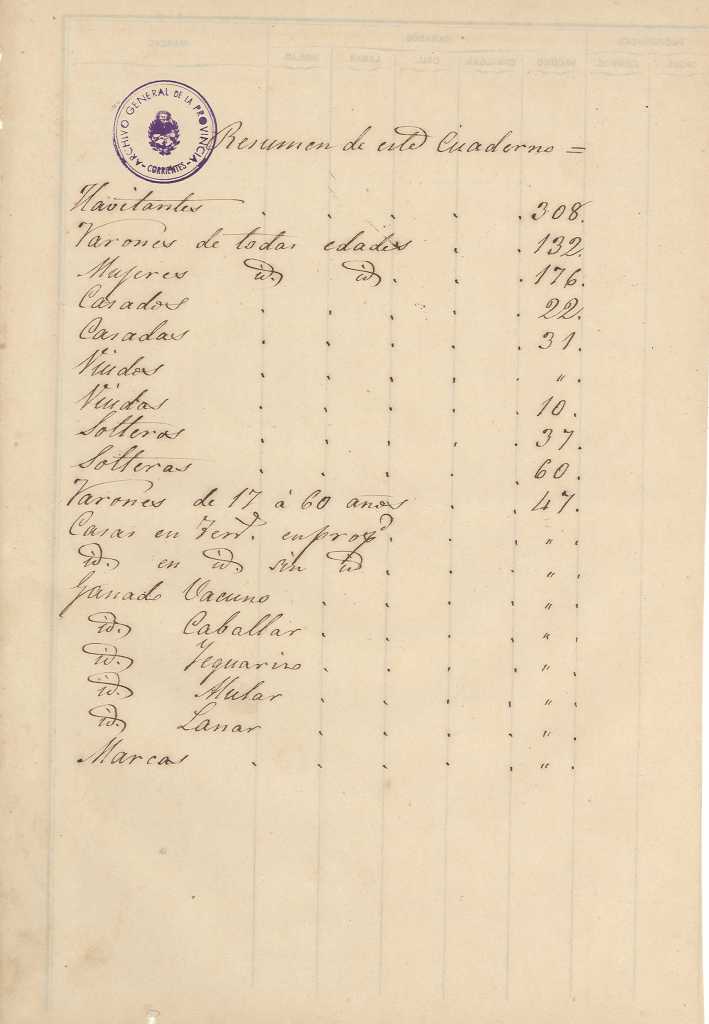 ARCHIVO GENERAL DE LA PROVINCIA
- CORRIENTES -
Resumen de este Cuaderno =
Havitantes . . . . . 308.
Varones de todas edades . . 132.
Mujeres id. id. . . . 176.
Casados . . . . . 22.
Casadas . . . . . 31.
Viudos . . . . . " .
Viudas . . . . . 10.
Solteros . . . . . 37.
Solteras . . . . . 60.
Varones de 17 á 60 años . . 47.
Casas en en propd. . . . " .
id. en id. sin id . . . " .
Ganado Vacuno . . . . " .
id. Caballar . . . . " .
id. Yeguariso . . . . " .
id. Mular . . . . " .
id. Lanar . . . . " .
Marcas . . . . . " .